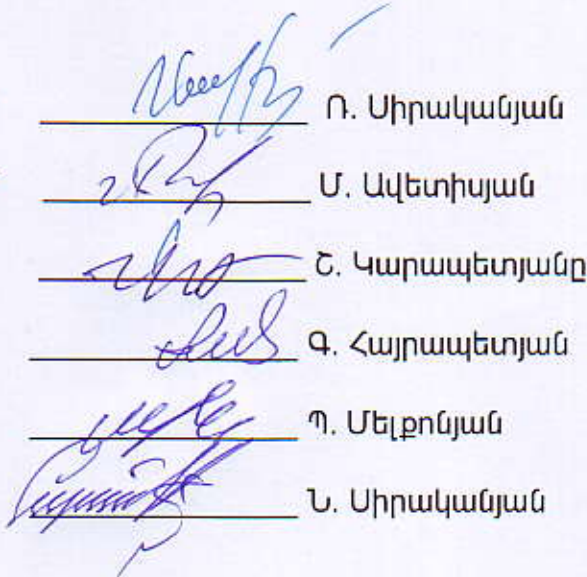 Ռ. Սիրականյան
Մ. Ավետիսյան
Շ. Կարապետյանը
Գ. Հայրապետյան
Պ. Մելքոնյան
Ն. Սիրականյան